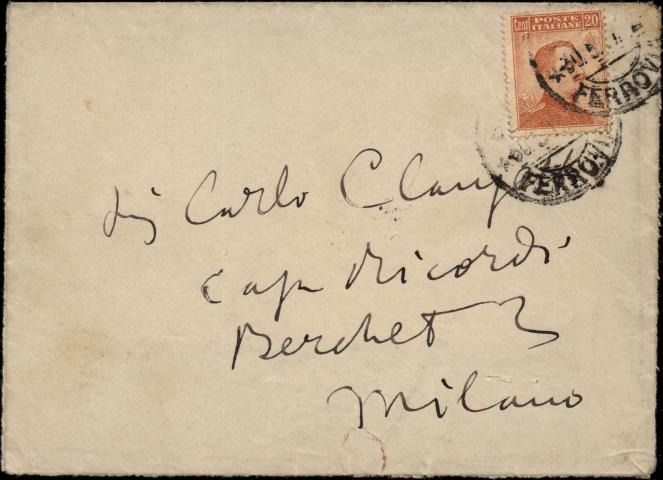 Cent POSTE ITALIANE 20
FERROVIA
FERROVIA
Sig Carlo Clausetti
Casa Ricordi
Berchet 2
Milano